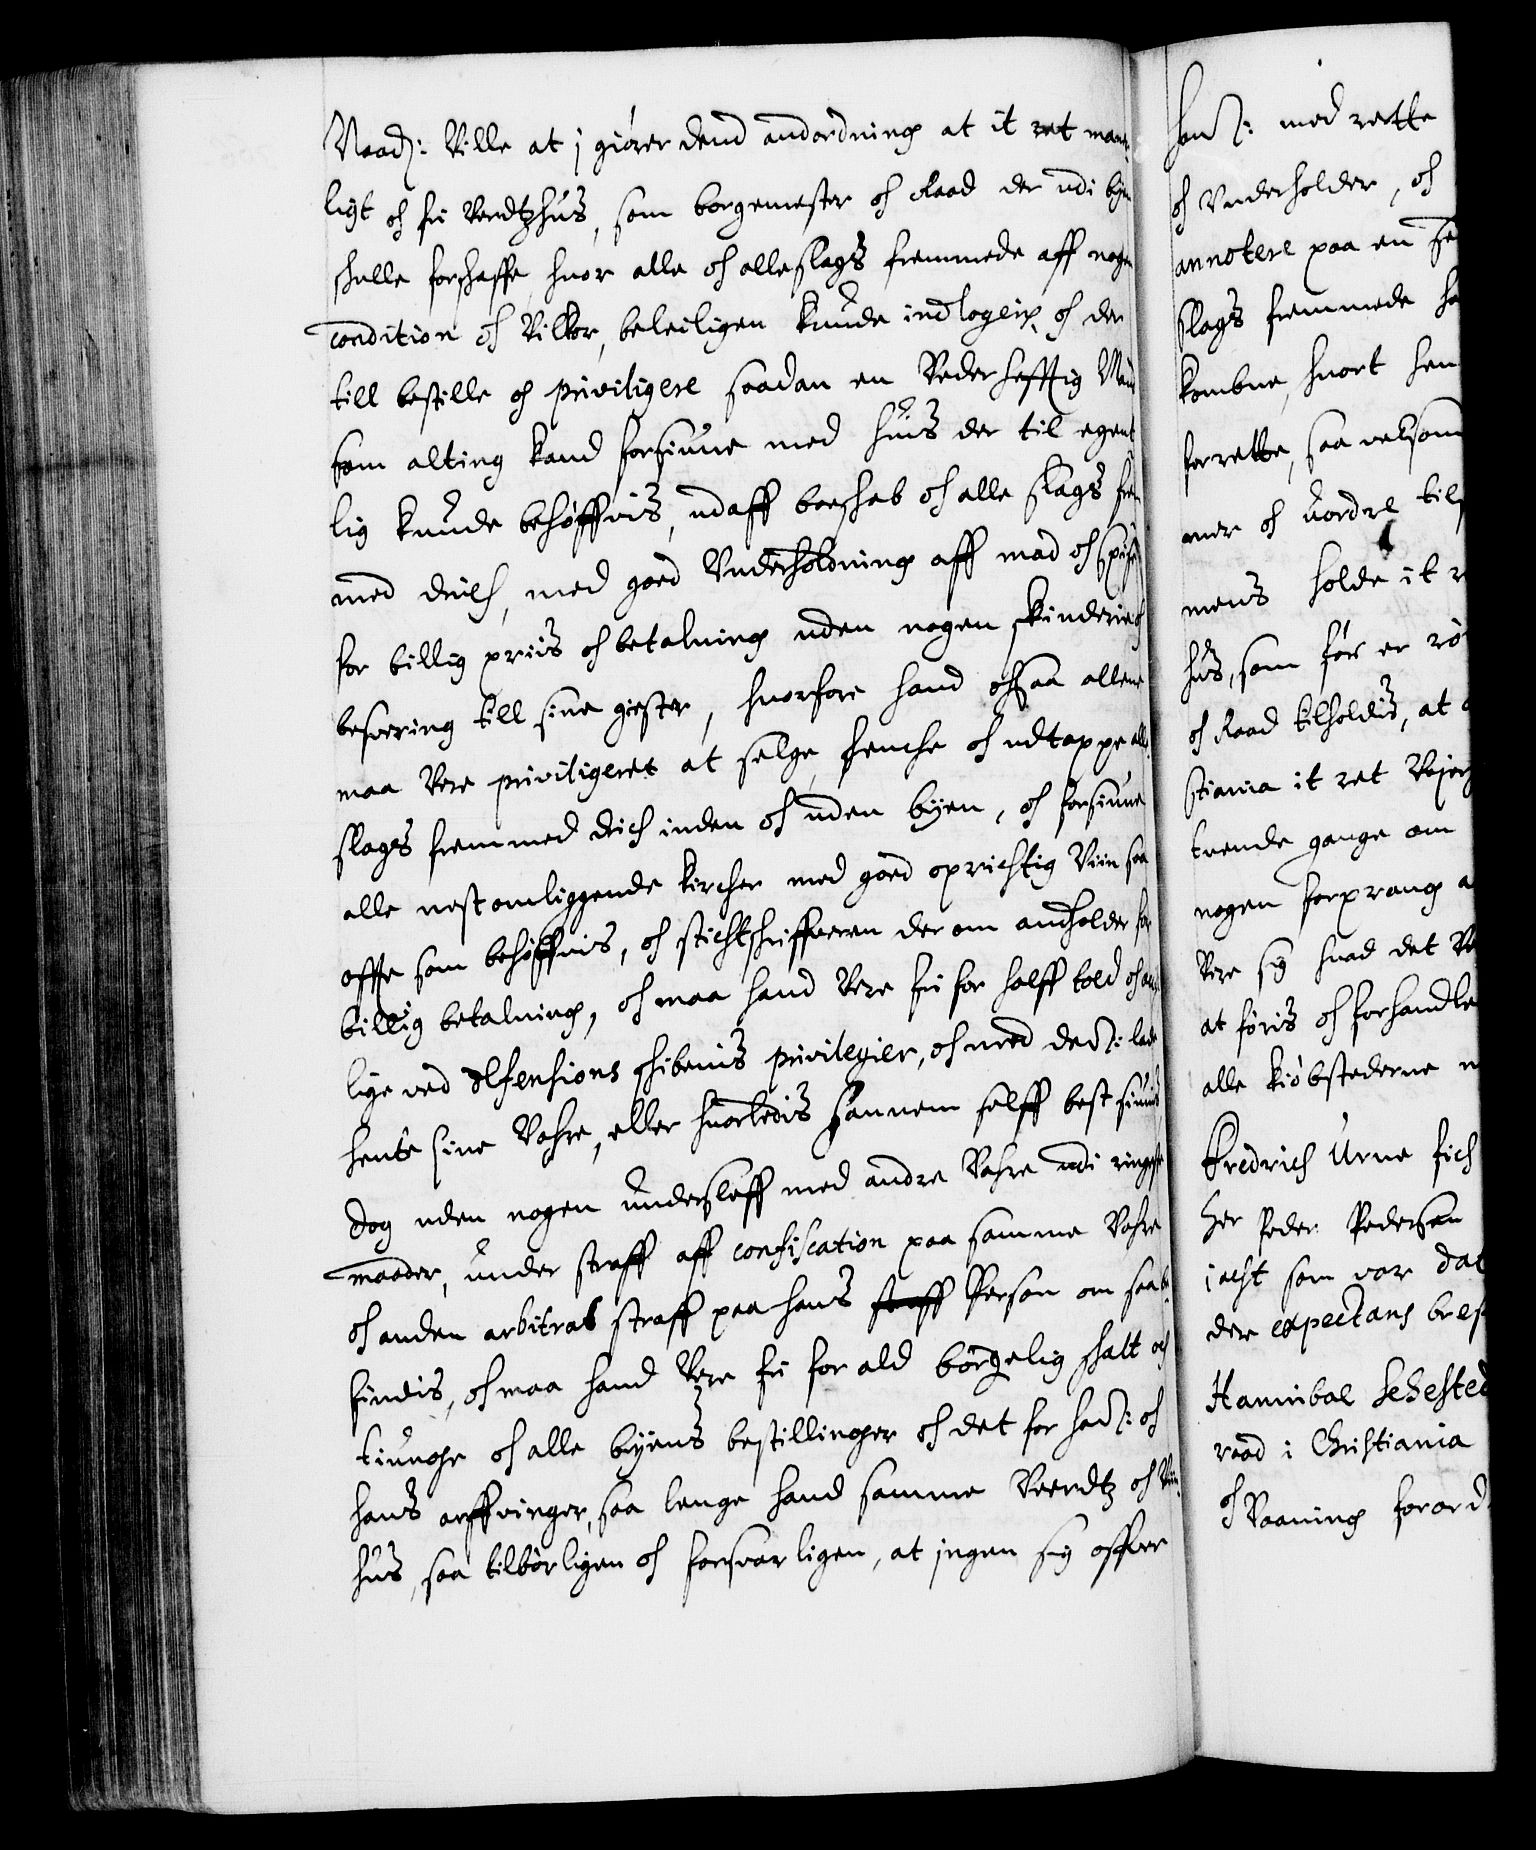 Naad: Ville at j giører dend andordning at it ret mane
ligt och fri Verdtzhus, som borgemester och Raad der udi byen
schulle forschaffe, huor alle och alleslags fremmede aff nogen
condition och Vilkor, beleiligen kunde indlogeris, och der
till bestille och priviligere saadan en Vederhefftig Mand
som alting kand forsiune med huis der til egent
lig kunde behøffvis, udaff boeschab och alle slags frem
med drich, med goed Underholdning aff mad och spise
for billig priis och betalning uden nogen skinderie och
besvering till sine giester, huorfore hand ochsaa allene
maa Vere priviligeret at selge, schenche och udtappe alle
slags fremmed drich inden och uden byen, och forsiune
alle nestomliggende kircher med goed oprichtig Viin saa
offte som behøffvis, och stichtschriffveren der om andholder for
billig betalning, och maa hand Vere fri for halff told och
lige ved defensions schibenis privilegier, och med den: lade
hente sine Vahre, eller huorledis hannem selff best siunis
dog uden nogen undersleff med andre Vahre udi ringeste
maader, under straff aff confiscation paa samme Vahre
och anden arbitral straff paa hans straff Person om saa be
findis, och maa hand Vere fri for ald borgelig schatt och
tiunge och alle byens bestillinger och det for hand: och
hans arffvinger, saa lenge hand samme Veerdtz och Viin
hus, saa tilbørligen och forsvarligen, at jngen sig offver
hand: med rette
och Underholder, och
annotere paa en
slags fremmede
kombne, huort hen
forrette, saa velsom
mer och vordre
mens holde it
hus, som før er
och Raad tilholdis, at
stiania it ret
trende gange om
nogen forprang
Vere sig huad det
at føris och forhandle
alle kiøbstederne
Fredrich Urne fich
Her Peder Pedersøn
jacht som var
der expectans
Hannibal Sehested
raad i Christiania
och Vaaning forord